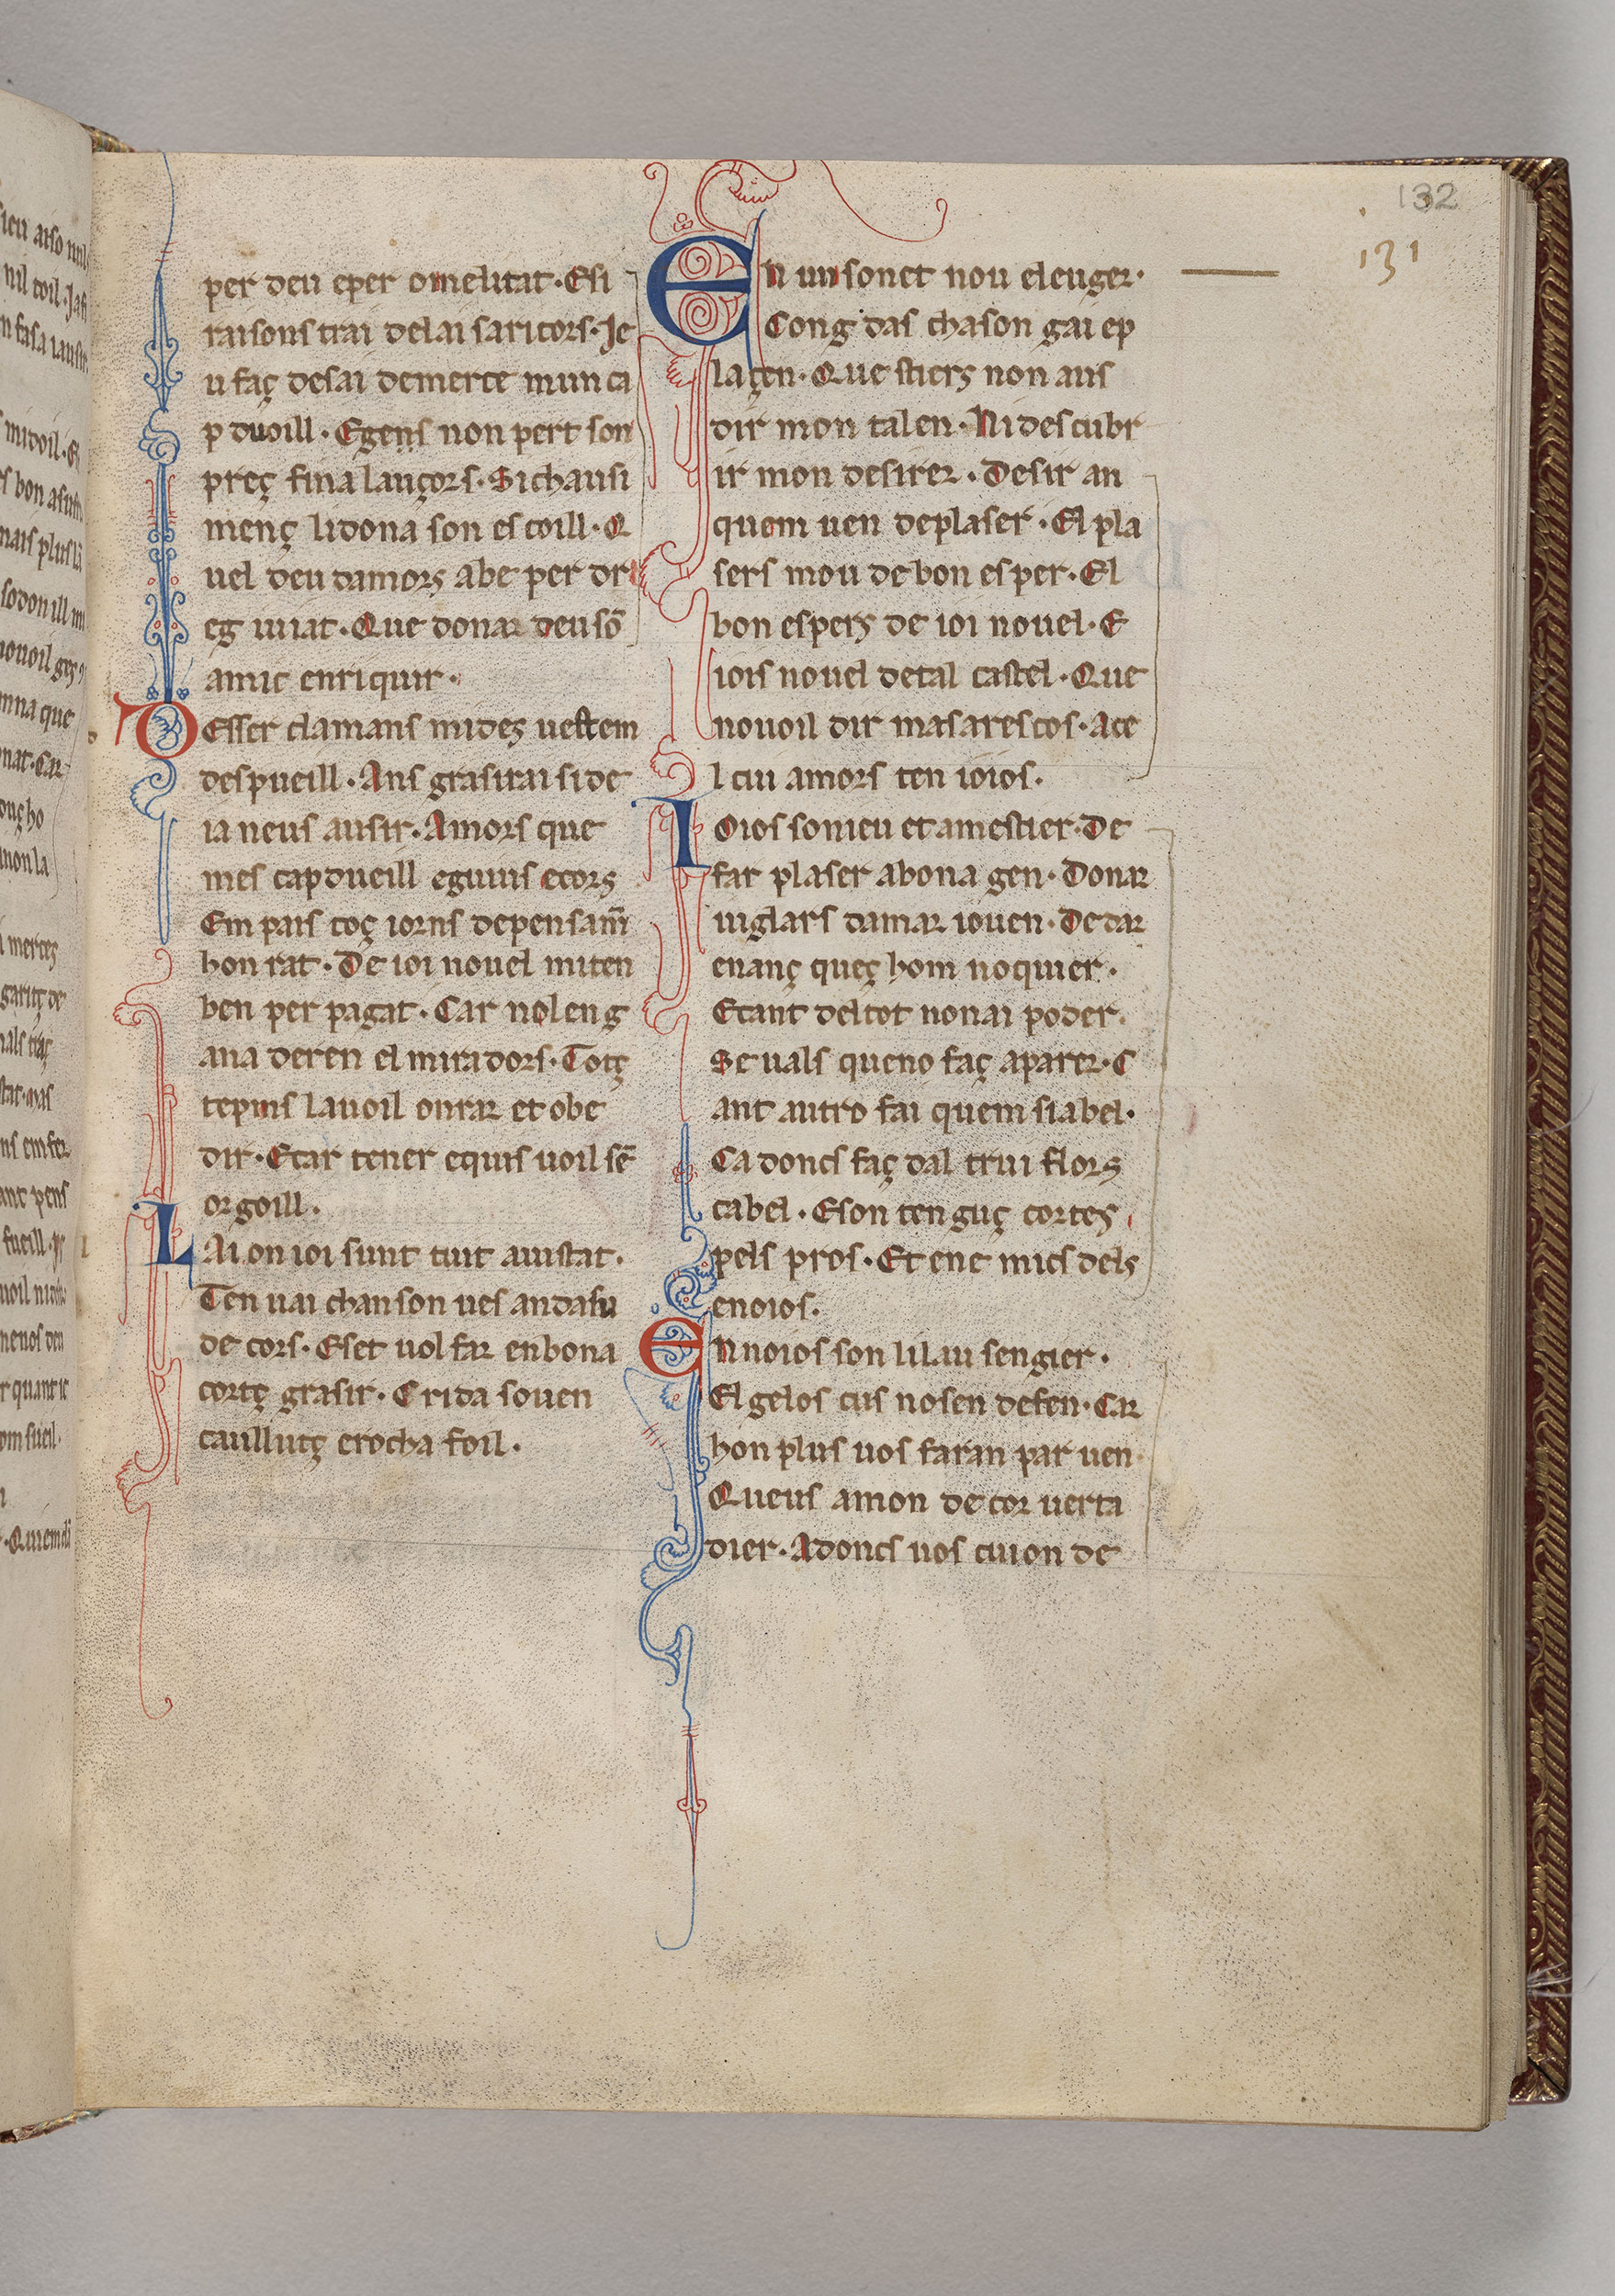 132
131
per deu eper omelitat·Esi
raisons trai delai saricors·Je
u faç desai demerce mun ca
p duoill·Egens non pert son
preç fina lançors·Si chausi
menç lidona son escoill·Q
uel deu damors abe per dr
eg uiat·Que donar deu sō
amic enriquir·
DEsser clamans mideς uestem
despueill·Ans grasirai si de
ia neus ausir·Amors que
mes capdueill eguuis ecors
Em pais toç iorns depensam̄
honrat·De ioi nouel miten
ben per pagat·Car nol eng
ana deren el miradors·Totç
tepins lauoil onrar et obe
dir·Etar tener equis uoil sē
orgoill.
LAi on ioi sunt tuit auistat·
Ten uai chanson ues andasu
de cors·Eset uol far enbona
cortç grasir·Crida souen
cauillutç erocha foil·
EN un sonet nou eleuger·
Cong das chason gai ep
laçen·Que stiers non aus
dir mon talen·Ni descubr
ir mon desirer·Desir an
quem uen deplaser·El pla
sers mou de bon esper·El
bon espers de ioi nouel·E
iois nouel detal castel·Que
nouoil dir mas arescos·Ace
l cui amors ten ioios.
IOios sonieu et amestier·De
far plaser abona gen·Donar
iuglars damar iouen·Dedar
enanç queç hom noquier·
Etant deltot nonai poder·
Se uals queno faç aparer·C
ant autro fai quem siabel·
Ca doncs faç dal trui flors
cabel·Eson tenguç cortes
pels pros·Et ene mics dels
enoios.
ENnoios son lilau sengier·
El gelos cus nosen defen·Car
hon plus uos faran par uen·
Queus amon de cor uerta
dier·Adoncs uos cuion de